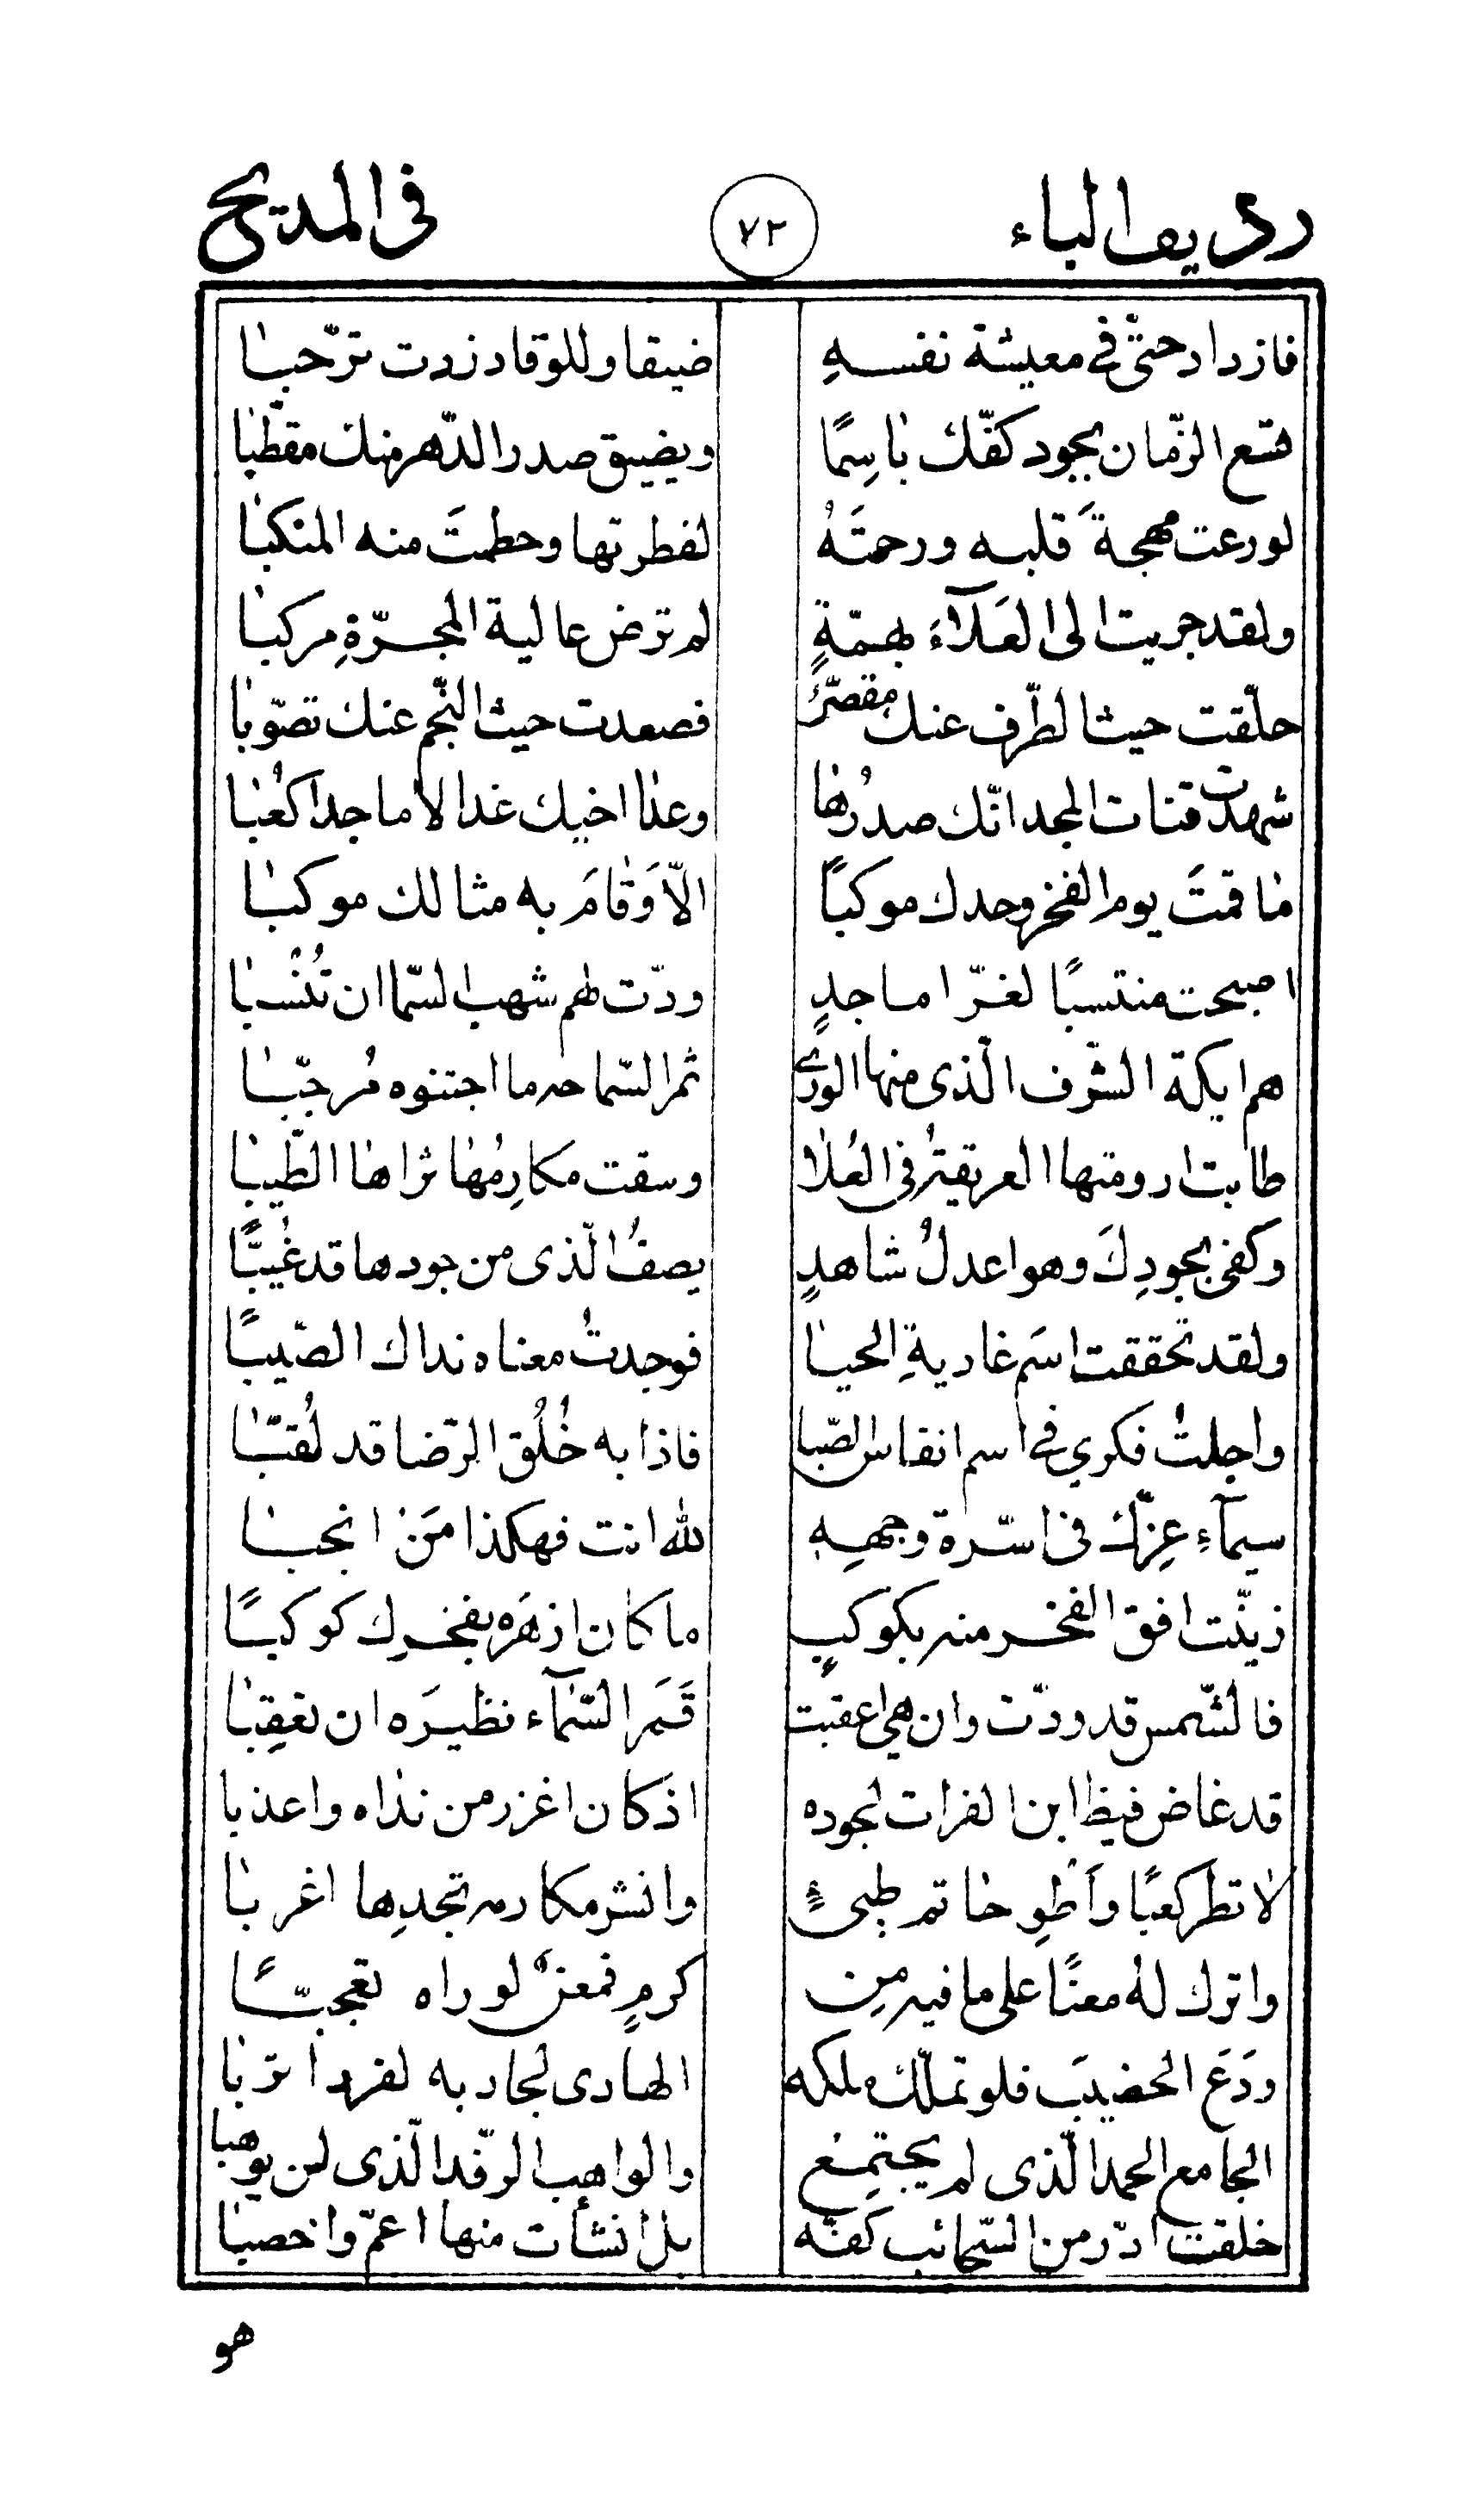 رديف الباء ٧٢ فى المديح
فازداد حتّى فى معيشة نفسهِ ضيقا وللوقاد زدت ترّحبا
فتسع الزّمان بجود كفّك باسِمًا ويضيق صدر الدّهر منك مقطّبا
لورعت مهجةَ قلبه ورحمتَهُ لفطرتها وحطمتَ منه المنكبا
ولقد جريت الى العَلآءَ بهمّةٍ لم ترض عالية المجرّةِ مركبا
حلّقت حيث الطّرف عنك مقصّرٌ فصعدت حيث النّجم عنك تصوّبا
شهدت قنات المجد انّك صدرُها وعلا اخيك غدا الاماجد اكعُبا
ما قمتَ يوم الفخر وحدك موكبًا الّا وَقامَ به مثالك موكبا
اصبحت منتسبًا لغرّ اماجدٍ ودّت لهم شهب السّما ان تُنْسُبا
هم ايكة الشّرف الّذى منها الورى ثمر السّماحه ما اجتنوه مُرجّبا
طابت ارومتها العريقةُ فى العُلا وسقت مكارِمُها ثراها الطّيبا
وكفى بجودِكَ وهو اعدلُ شاهدٍ يصفُ الّذى من جودها قد غُيّبًا
ولقد تحققت اسَم غاديةِ الحيا فوجدتُ معناه نداك الصّيبًا
واجلتُ فكري فى اسم انفاس الصّبا فاذا به خُلُق الرّضا قد لُقّبا
سيمآءِ عِزِّك فى اسّرة وجههِ لله انت فهكذا مَنْ انجبا
زيّنت افق الفخر منه بكوكبٍ ما كان ازهَره بفخرِك كوكبًا
فالشّمس قد ودّت وان هي اعقبت قَمَر السّمآء نظيرَه ان تعقِبا
قد غاض فيظ ابن الفرات لجوده اذ كان اغزر من نداه واعذبا
لا تطر كعبًا وَاَطوِ حاتم طيئٍ وانشر مكارمه تجدها اغربا
واترك لهُ معنًا على ما فيه مِن كرمٍ فمعنٌ لو راه تعجّبًا
ودَعَ الخضيبَ فلو تملّك ملكه الهادى لجاد به لفرد اتربا
الجامع الحمد الّذى لم يجتمِع والواهب الرّفد الّذى لن يوهبا
خلقت ادّر من السّحائب كفّه بل انشأت منها اعمّ واخصبا
هو